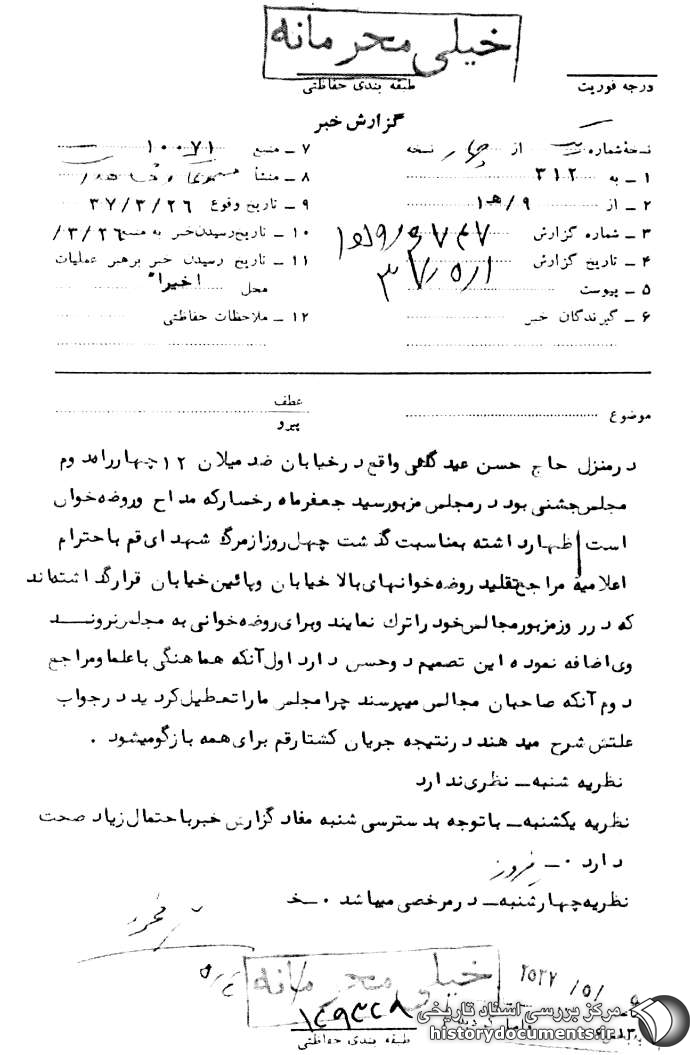 خیلی محرمانه
طبقه بندی حفاظتی
درجه فوریت
گزارش خبر
نسخهٔ شماره یک از چهار نسخه
۱ ـ به ۳۱۲
۲ ـ از ۹/هـ۱
۳ ـ شماره گزارش
۴ ـ تاریخ گزارش
۵ ـ پیوست
۶ ـ گیرندگان خبر
۷ ـ منبع ۱۰۰۷۱
۸ ـ منشأ
۹ ـ تاریخ وقوع ۳۷/۳/۲۶
۱۰ ـ تاریخ رسیدن خبر به منبع ۳/۲۶/
۱۱ ـ تاریخ رسیدن خبر برهبر عملیات
محل اخیرا"
۱۲ ـ ملاحظات حفاظتی
موضوع
عطف
پیرو
درمنزل حاج حسن عیدگاهی واقع درخیابان ضد میلان ۱۲ چهارراه دوم
مجلس جشنی بود درمجلس مزبورسید جعفرماه رخسارکه مداح وروضه‌خوان
است اظهارداشته بمناسبت گذشت چهل روزازمرگ شهدای قم باحترام
اعلامیه مراجع تقلید روضه‌خوانهای بالا خیابان وپائین خیابان قرارگذاشته‌اند
که درروزمزبورمجالس خود راترك نمایند وبرای روضه‌خوانی به مجلس نروند
وی اضافه نموده این تصمیم دوحسن دارد اول آنکه هماهنگی باعلما ومراجع
دوم آنکه صاحبان مجالس میپرسند چرامجلس ماراتعطیل کردید درجواب
علتش شرح میدهند درنتیجه جریان کشتارقم برای همه بازگومیشود .
نظریه شنبه ـ نظری ندارد
نظریه یکشنبه ـ باتوجه بدسترسی شنبه مفاد گزارش خبرباحتمال زیاد صحت
دارد ۰ ـ فیروز
نظریه چهارشنبه ـ درمرخصی میباشد ۰ ـ خ
خیلی محرمانه
طبقه بندی حفاظتی
مرکز بررسی اسناد تاریخی
historydocuments.ir